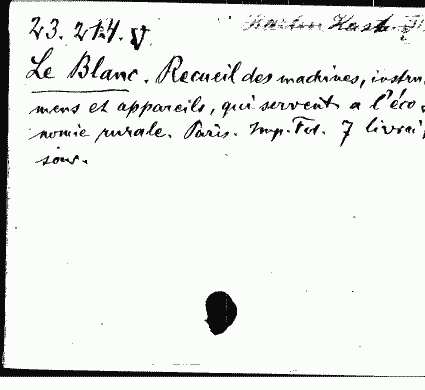 23. 214. V
Le Blanc. Recueil des machines, instru
mens et appareils, qui servent a l'éco
nomie rurale. Paris. Imp. Fol. 7 livrai,
sons.